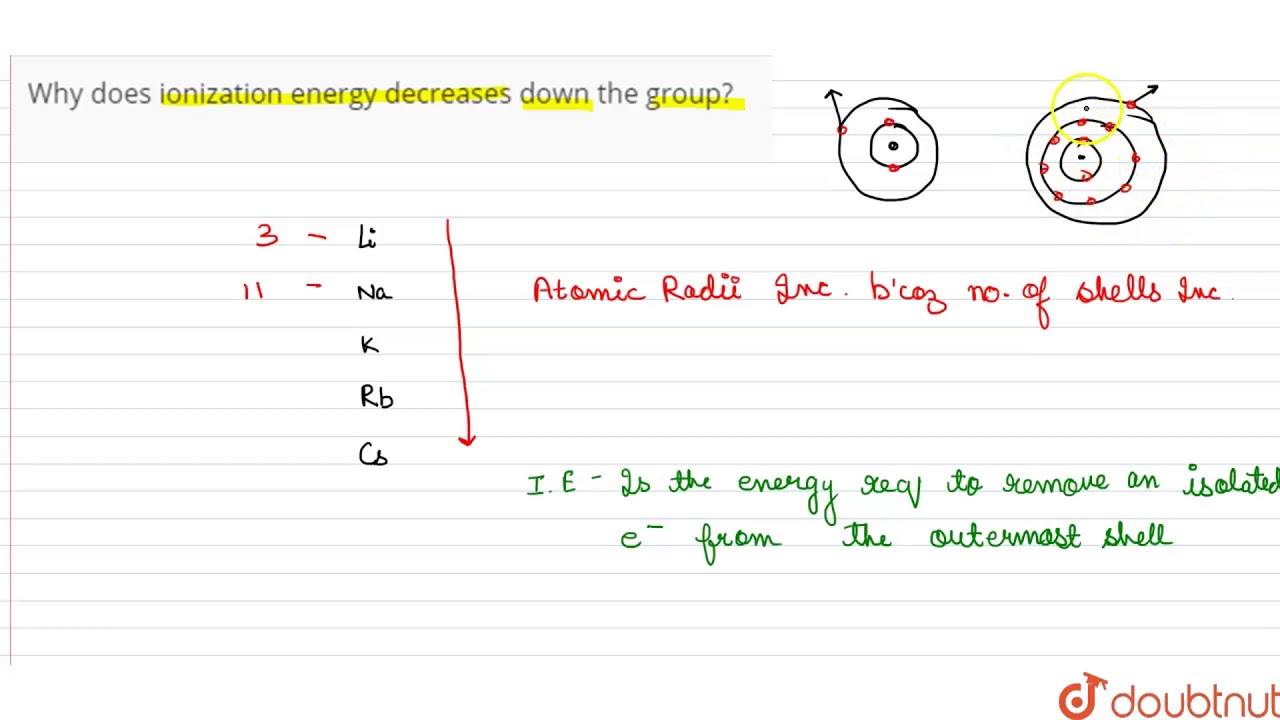 Why does ionization energy decreases down the group?
3 - Li
11 - Na
K
Rb
Cs
Atomic Radii Inc. b'coz no. of shells Inc.
I.E - Is the energy req to remove an isolated
e⁻ from the outermost shell
doubtnut